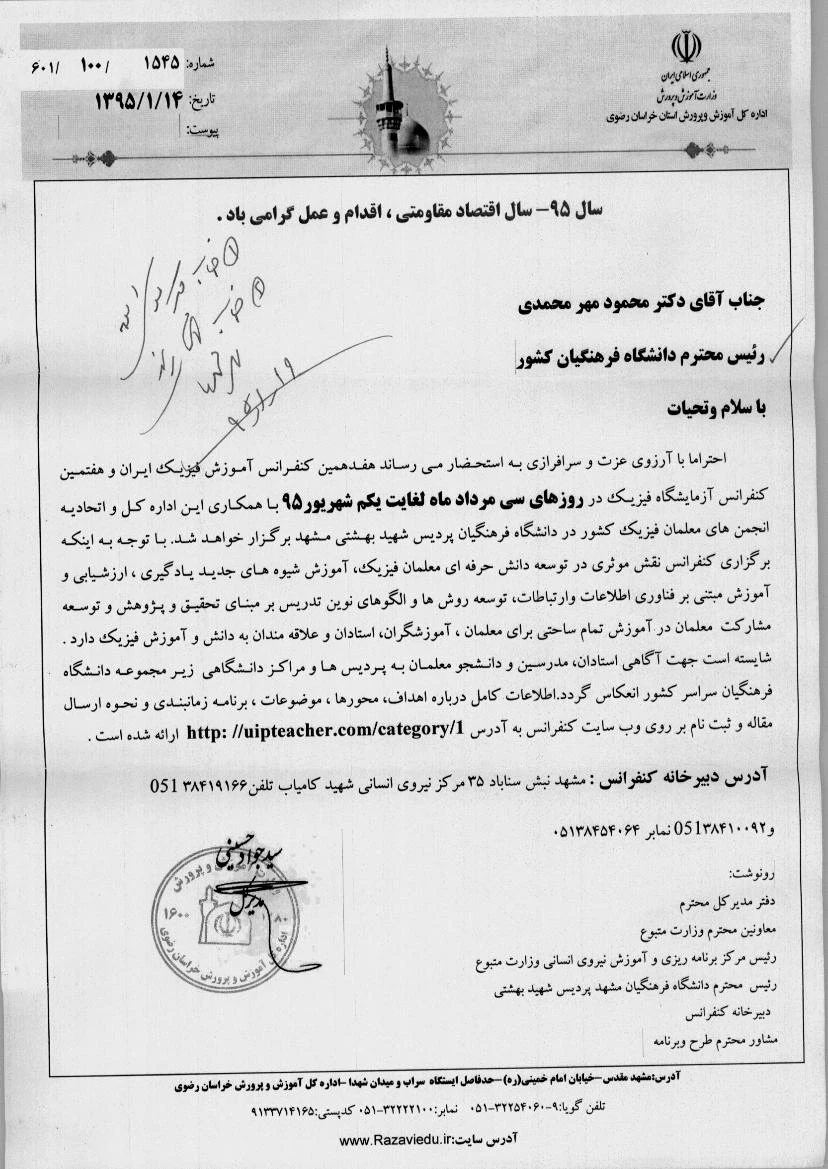 جمهوری اسلامی ایران
وزارت آموزش و پرورش
اداره کل آموزش وپرورش استان خراسان رضوی
شماره: ۱۵۴۵ /۱۰۰ /۶۰۱
تاریخ: ۱۳۹۵/۱/۱۴
پیوست:
سال ۹۵- سال اقتصاد مقاومتی ، اقدام و عمل گرامی باد .
جناب آقای دکتر محمود مهر محمدی
رئیس محترم دانشگاه فرهنگیان کشور
با سلام وتحیات
احتراما با آرزوی عزت و سرافرازی به استحضار می رساند هفدهمین کنفرانس آموزش فیزیک ایران و هفتمین
کنفرانس آزمایشگاه فیزیک در روزهای سی مرداد ماه لغایت یکم شهریور۹۵ با همکاری این اداره کل و اتحادیه
انجمن های معلمان فیزیک کشور در دانشگاه فرهنگیان پردیس شهید بهشتی مشهد برگزار خواهد شد. با توجه به اینکه
برگزاری کنفرانس نقش موثری در توسعه دانش حرفه ای معلمان فیزیک، آموزش شیوه های جدید یادگیری ، ارزشیابی و
آموزش مبتنی بر فناوری اطلاعات وارتباطات، توسعه روش ها و الگوهای نوین تدریس بر مبنای تحقیق و پژوهش و توسعه
مشارکت معلمان در آموزش تمام ساحتی برای معلمان ، آموزشگران، استادان و علاقه مندان به دانش و آموزش فیزیک دارد .
شایسته است جهت آگاهی استادان، مدرسین و دانشجو معلمان به پردیس ها و مراکز دانشگاهی زیر مجموعه دانشگاه
فرهنگیان سراسر کشور انعکاس گردد.اطلاعات کامل درباره اهداف، محورها ، موضوعات ، برنامه زمانبندی و نحوه ارسال
مقاله و ثبت نام بر روی وب سایت کنفرانس به آدرس http: //uipteacher.com/category/1 ارائه شده است .
آدرس دبیرخانه کنفرانس : مشهد نبش سناباد ۳۵ مرکز نیروی انسانی شهید کامیاب تلفن۳۸۴۱۹۱۶۶ 051
و۰۹۲ 05۱۳۸۴۱۰ نمابر ۰۵۱۳۸۴۵۴۰۶۴
سید جواد حسینی
مدیرکل
اداره کل آموزش و پرورش خراسان رضوی
رونوشت:
دفتر مدیرکل محترم
معاونین محترم وزارت متبوع
رئیس مرکز برنامه ریزی و آموزش نیروی انسانی وزارت متبوع
رئیس محترم دانشگاه فرهنگیان مشهد پردیس شهید بهشتی
دبیرخانه کنفرانس
مشاور محترم طرح وبرنامه
آدرس:مشهد مقدس-خیابان امام خمینی(ره) -حدفاصل ایستگاه سراب و میدان شهدا -اداره کل آموزش و پرورش خراسان رضوی
تلفن گویا:۹-۳۲۲۵۴۰۶۰-۰۵۱ نمابر:۳۲۲۲۲۱۰۰-۰۵۱ کدپستی:۹۱۳۳۷۱۴۱۶۵
آدرس سایت:www.Razaviedu.ir